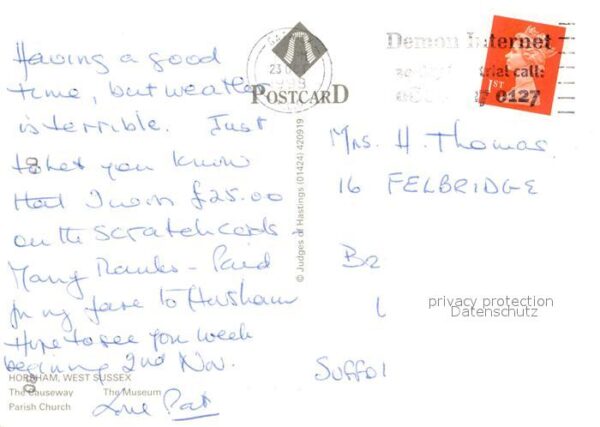 Having a good
time, but weather
is terrible. Just
to let you know
that I won £25.00
on the scratchcards -
Many Thanks - Paid
for my fare to Horsham
Hope to see you week
beginning 2nd Nov.
Love Pat
HORSHAM, WEST SUSSEX
The Causeway The Museum
Parish Church
POSTCARD
© Judges of Hastings (01424) 420919
Demon Internet
trial call:
0127
1ST
Mrs. H. Thomas
16 FELBRIDGE
privacy protection
Datenschutz
Suffol